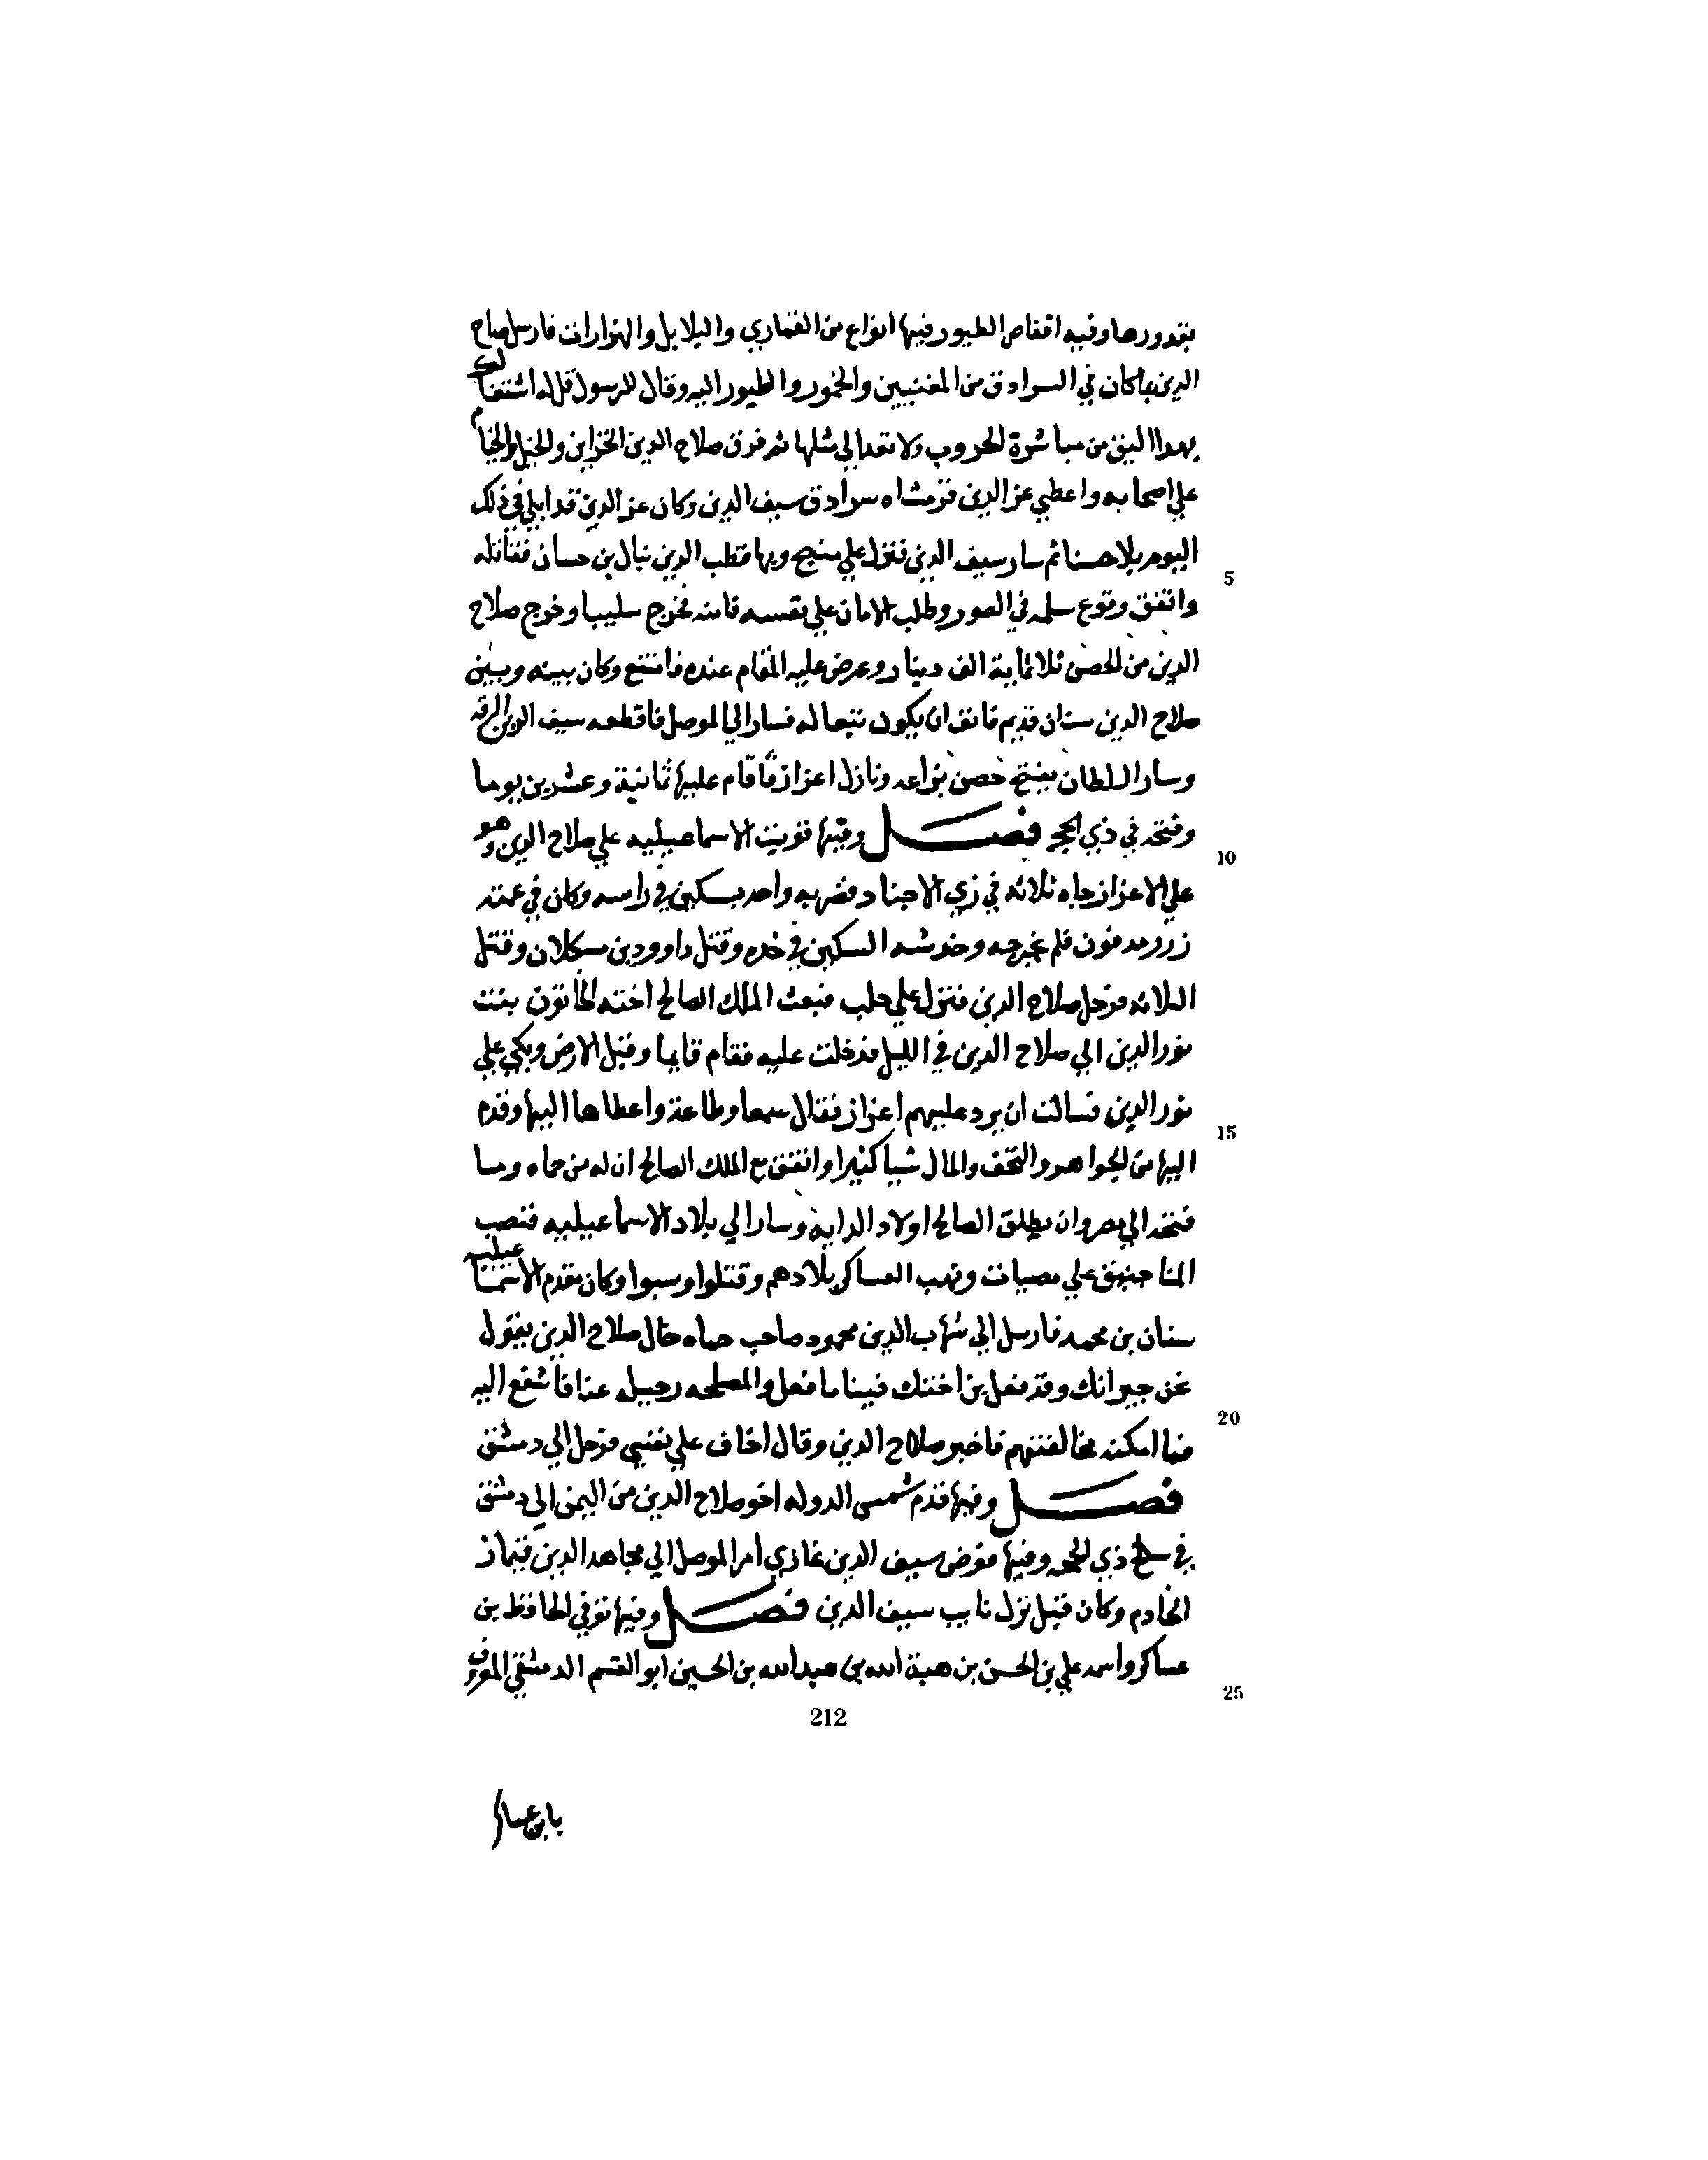 بقدورها وفيه اقفاص الطيور فيها انواع من القماري والبلابل والهزارات فارسل صلاح
الدين بما كان في السرادق من المغنيين والخمور والطيور اليه وقال للرسول قل له اشتغالك
بهدا اليق من مباشرة الحروب ولا تعد الي مثلها ثم فرق صلاح الدين الخزاين والخيل والخيام
علي اصحابه واعطي عز الدين فرخشاه سرادق سيف الدين وكان عز الدين قد ابلي في ذلك
اليوم بلا حسنا ثم سار سيف الدين فنزل علي منبج وبها قطب الدين ينال بن حسان فقاتله
5
واتفق وقوع سلمه في السور وطلب الامان علي نفسه فامنه فخرج سليبا وخرج صلاح
الدين من الحصن ثلاثماية الف دينار وعرض عليه المقام عنده فامتنع وكان بينه وبين
صلاح الدين سنان قديم فانف ان يكون تبعا له فسار الي الموصل فاقطعه سيف الدين الرقه
وسار السلطان بفتح حصن بزاعه ونازل اعزاز فاقام عليها ثمانية وعشرين يوما
وفتحه في ذي الحجه فصل وفيها قفزت الاسماعيليه علي صلاح الدين وهو
10
علي الاعزاز جاه ثلاثه في زي الاجناد فضربه واحد بسكين في راسه وكان في عمته
زرد مدفون فلم تخرجه وخدشه السكين في خده وقتل داوود بن سكلان وقتل
الثلاثه فرحل صلاح الدين فنزل علي حلب فبعث الملك الصالح اخته الخاتون بنت
نور الدين الي صلاح الدين في الليل فدخلت عليه فقام قايما وقبل الارض وبكي علي
نور الدين فسالت ان يرد عليهم اعزاز فقال سمعا وطاعة واعطاها اليها وقدم
15
اليها من الجواهر والتحف والمال شيا كثيرا واتفق مع الملك الصالح ان له من حماه وما
فتحه الي مصر وان يطلق الصالح اولاد الداية وسار الي بلاد الاسماعيليه فنصب
المناجنيق علي مصيات ونهب العساكر بلادهم وقتلوا وسبوا وكان مقدم الاسماعيليه
سنان بن محمد فارسل الي شهاب الدين محمود صاحب حماه خال صلاح الدين يقول
نحن جيرانك وقد فعل بن اختك فينا ما فعل والمصلحه رحيله عنا فاشفع اليه
20
فما امكنه مخالفتهم فاخبر صلاح الدين وقال اخاف علي نفسي فرحل الي دمشق
فصل وفيها قدم شمس الدوله اخو صلاح الدين من اليمن الي دمشق
في سلخ ذي الحجه وفيها فوض سيف الدين غازي امر الموصل الي مجاهد الدين قيماز
الخادم وكان قبل نزل نايب سيف الدين فصل وفيها توفي الحافظ بن
عساكر واسمه علي بن الحسن بن هبة الله بن عبد الله بن الحسين ابو القسم الدمشقي المعروف
25
212
بابن عساكر